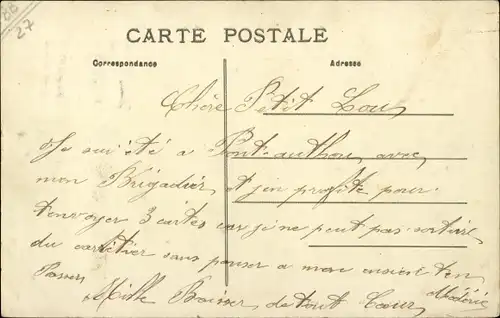 27
CARTE POSTALE
Correspondance
Adresse
Chère Petit Lou
Je sui été a Pont-authou avec
mon Brigadier, et j'en profite pour
t'envoyer 3 cartes car je ne peut pas sortire
du cantier sans penser a mon ancien ten
Passer
Mille Baiser de tout Cœur